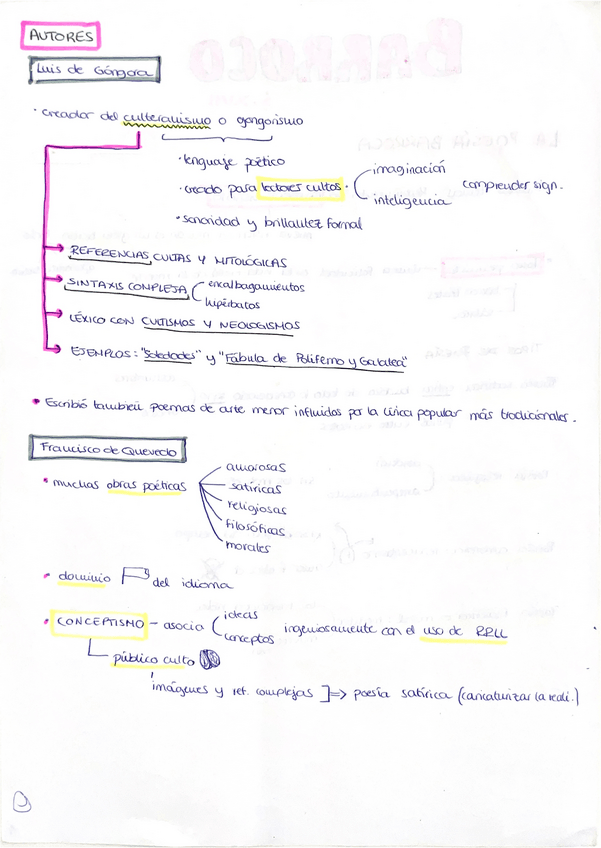 AUTORES
Luis de Góngora
· creador del culteranismo o gongorismo
· lenguaje poético
· creado para lectores cultos · imaginación comprender sign.
inteligencia
· sonoridad y brillantez formal
REFERENCIAS CULTAS Y MITOLÓGICAS
SINTAXIS COMPLEJA encalbagamientos
hipérbatos
LÉXICO CON CULTISMOS Y NEOLOGISMOS
EJEMPLOS: "Soledades" y "Fábula de Polifemo y Galatea"
· Escribió también poemas de arte menor influidos por la lírica popular más tradicionales.
Francisco de Quevedo
· muchas obras poéticas amorosas
satíricas
religiosas
filosóficas
morales
· dominio del idioma
· CONCEPTISMO - asocia ideas
conceptos ingeniosamente con el uso de RRLL
público culto
imágenes y ref. complejas ] => poesía satírica (caricaturizar la reali.)